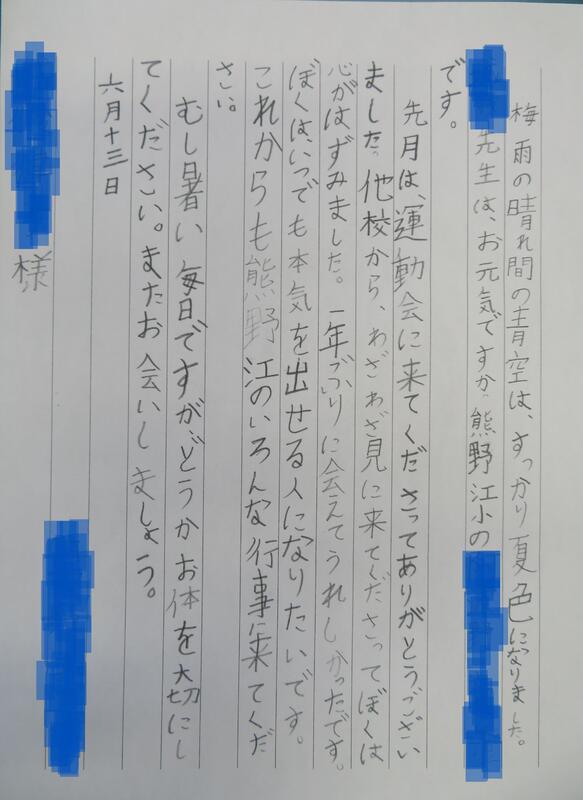 梅雨の晴れ間の青空は、すっかり夏色になりました。
先生は、お元気ですか。熊野江小の
です。
先月は、運動会に来てくださってありがとうござい
ました。他校から、わざわざ見に来てくださってぼくは
心がはずみました。一年ぶりに会えてうれしかったです。
ぼくは、いつでも本気を出せる人になりたいです。
これからも熊野江のいろんな行事に来てくだ
さい。
むし暑い毎日ですが、どうかお体を大切にし
てください。またお会いしましょう。
六月十三日
様